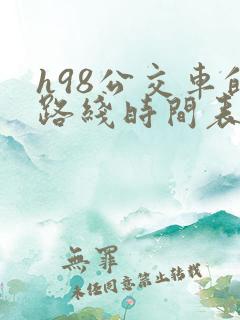 h98公交車
路綫時間表
無罪
未经同意禁止转载